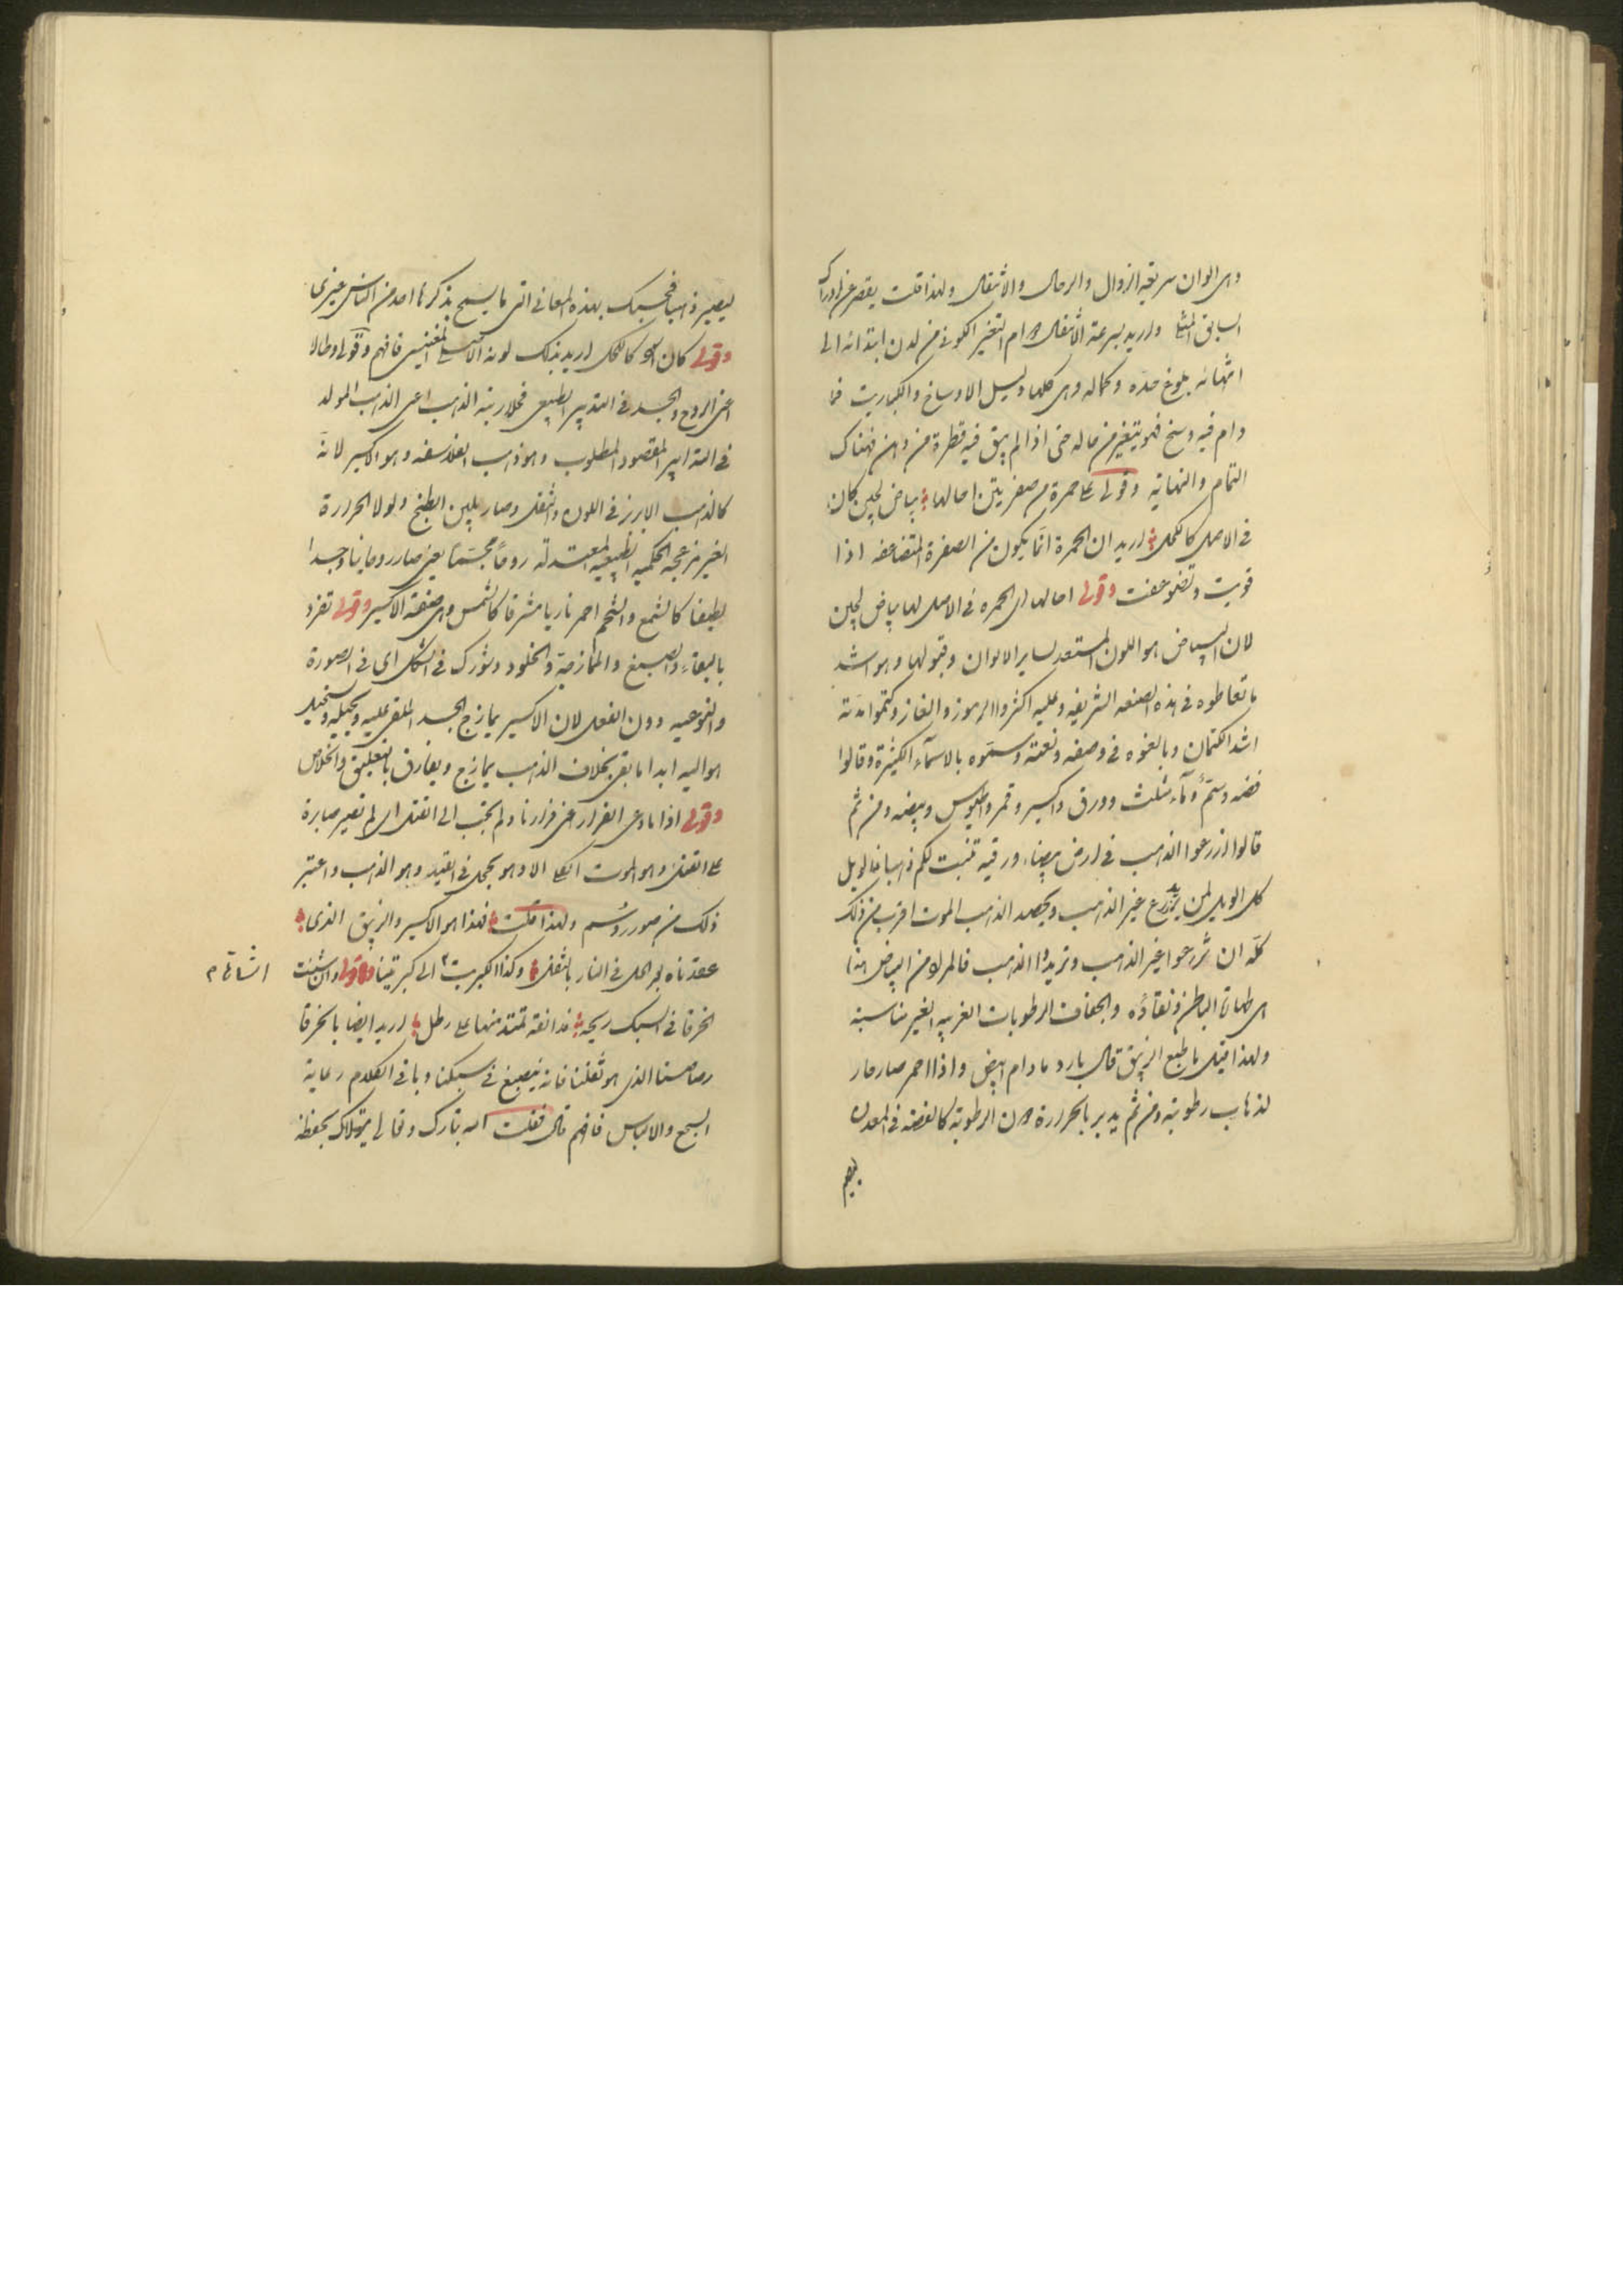 وهى الوان سريعة الزوال والرحال والانتقال ولهذا قلت يقصر عن ادراك
السابق واريد بسرعة الانتقال دوام التغير الكونى من لدن ابتدائه الى
انتهائه بلوغ حده وكماله وهى كلها دليل الاوساخ والكباريت فما
دام فيه وسخ فهو يتغير من حاله حتى اذا لم يبق فيه قطرة من دهن فهناك
التمام والنهاية وقولى على حمرة من صفرتين احالها بياض لجين كان
فى الاصل كالكحل اريد ان الحمرة انما يكون من الصفرة المتضاعفه اذا
قويت وتضوعفت وقولى احالها اى الحمره فى الاصل لها بياض لجين
لان البياض هو اللون المستعد لساير الالوان وقبولها وهو اشد
ما تعاطوه فى هذه الصنعه الشريفه وعليه اكثروا الرموز والغاز وكتموا
اشد الكتمان وبالغوه فى وصفه ونعته وسموه بالاسماء الكثيرة وقالوا
فضه وسم وماء مثلث وورق واكسير وقمر وبيضه ومن ثم
قالوا ازرعوا الذهب فى ارض بيضاء ورقيه تنبت لكم ذهبا فالويل
كل الويل لمن يزرع غير الذهب ويحصد الذهب الموت اقرب من ذلك
كله ان تزرعوا غير الذهب وتريدوا الذهب فالمراد من البياض هنا
هى طهارة الباطن ونقاؤه والجفاف الرطوبات الغريبه الغير مناسبة
ولهذا قيل ما طبع الزيبق قال بارد مادام ابيض واذا احمر صار حار
لذهاب رطوبته ومن ثم يدبر بالحرارة دون الرطوبة كالفضه فى المعدن
ليصير
ليصير ذهبا فحسبك بهذه المعانى التى ما يسمح بذكرها احد من الناس غيرى
وقولى كان كالكحل اريد بذلك لونه فافهم وقولى وطالا
اعنى الروح والجسد فى التدبير الطبيعى فحلا رتبة الذهب اعنى الذهب المولد
فى التدابير المقصود المطلوب وهو ذهب الفلاسفه وهو اكسير لانه
كالذهب الابرز فى اللون والثقل وصار بلين الطبخ ولولا الحرارة
الغير مزعجه الحكميه الطبيعيه المعتدلة روحا مجسما يعنى صار روحانيا وجسدا
لطيفا كالشمع والشحم احمر ناريا مشرقا كالشمس وهى صفة الاكسير وقولى تفرد
بالبقاء والصبغ والممازجة والخلود وشورك فى الشكل اى فى الصورة
والنوعيه دون الفعل لان الاكسير يمازج الجسد الملقى عليه ويحيله ويستحيل
هو اليه ابدا ما بقى بخلاف الذهب يمازج ويفارق بالتعليق والخلاص
وقولى اذا نادى الفرار اعنى فرارنا ولم يجب الى القتل اى لم تصير صابرة
على القتل وهو الموت الا وهو يحجل فى القيد وهو الذهب واعتبر
ذلك من صور رؤسم ولهذا قلت فهذا هو الاكسير والزيبق الذى
عقدناه بوالحل فى النار بالثقل وكذا الكبريت الى كبريتنا وقولى وان شئت
انشاقا م
الخرقا فى السبك ريحه فدانقه تمتد منها على رطل اريد ايضا بالخرقا
رصاصنا الذى هو ثقلنا فانه ينصبغ فى سبكنا وباقى الكلام رعاية
السجع والالباس فافهم قال فقلت الله تبارك وتعالى يتولاك بحفظه